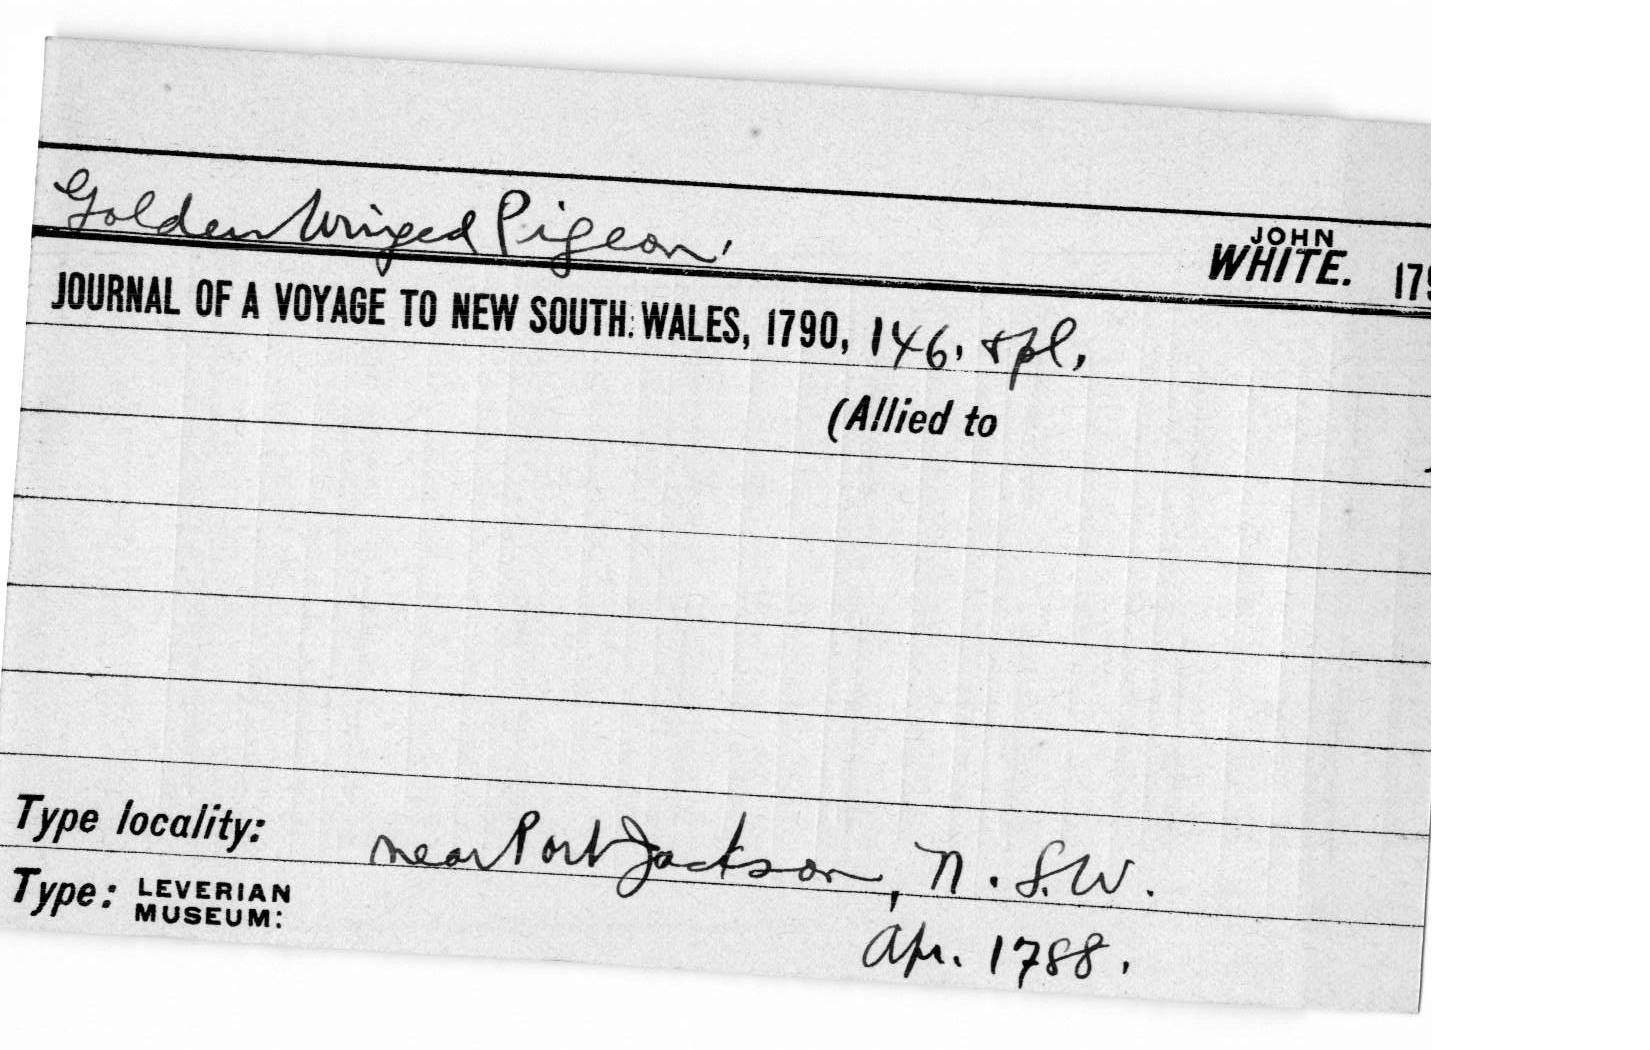 Golden Winged Pigeon.
JOHN
WHITE. 179
JOURNAL OF A VOYAGE TO NEW SOUTH: WALES, 1790, 146, & pl.
(Allied to
Type locality: near Port Jackson, N. S. W.
Type: LEVERIAN
MUSEUM:
Apr. 1788.